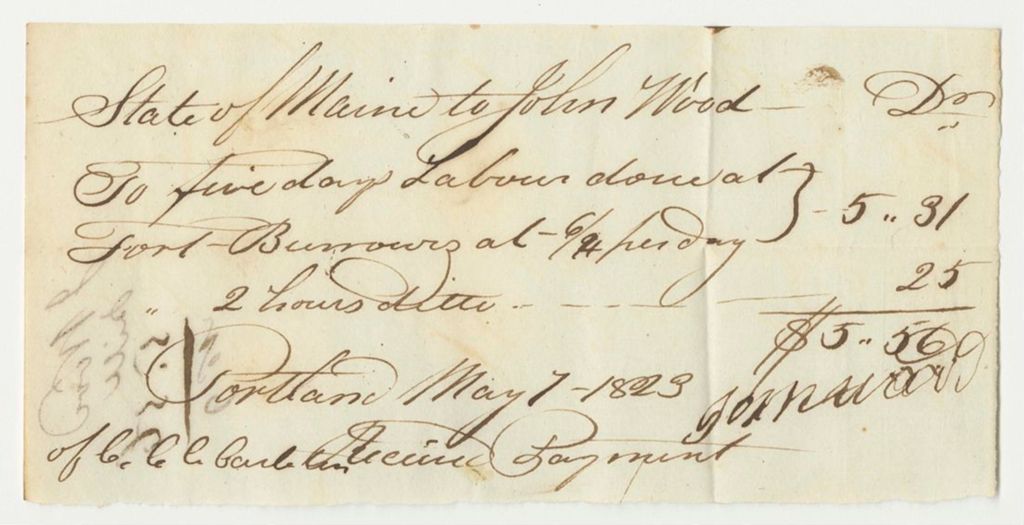 State of Maine to John Wood — Dr
To five days Labour done at } - 5 " 31
Fort Burrows at 6/4 per day
" 2 hours ditto - - - 25
$5 " 56
Portland May 7 - 1823
John Wood
of C. C. Receivd Payment